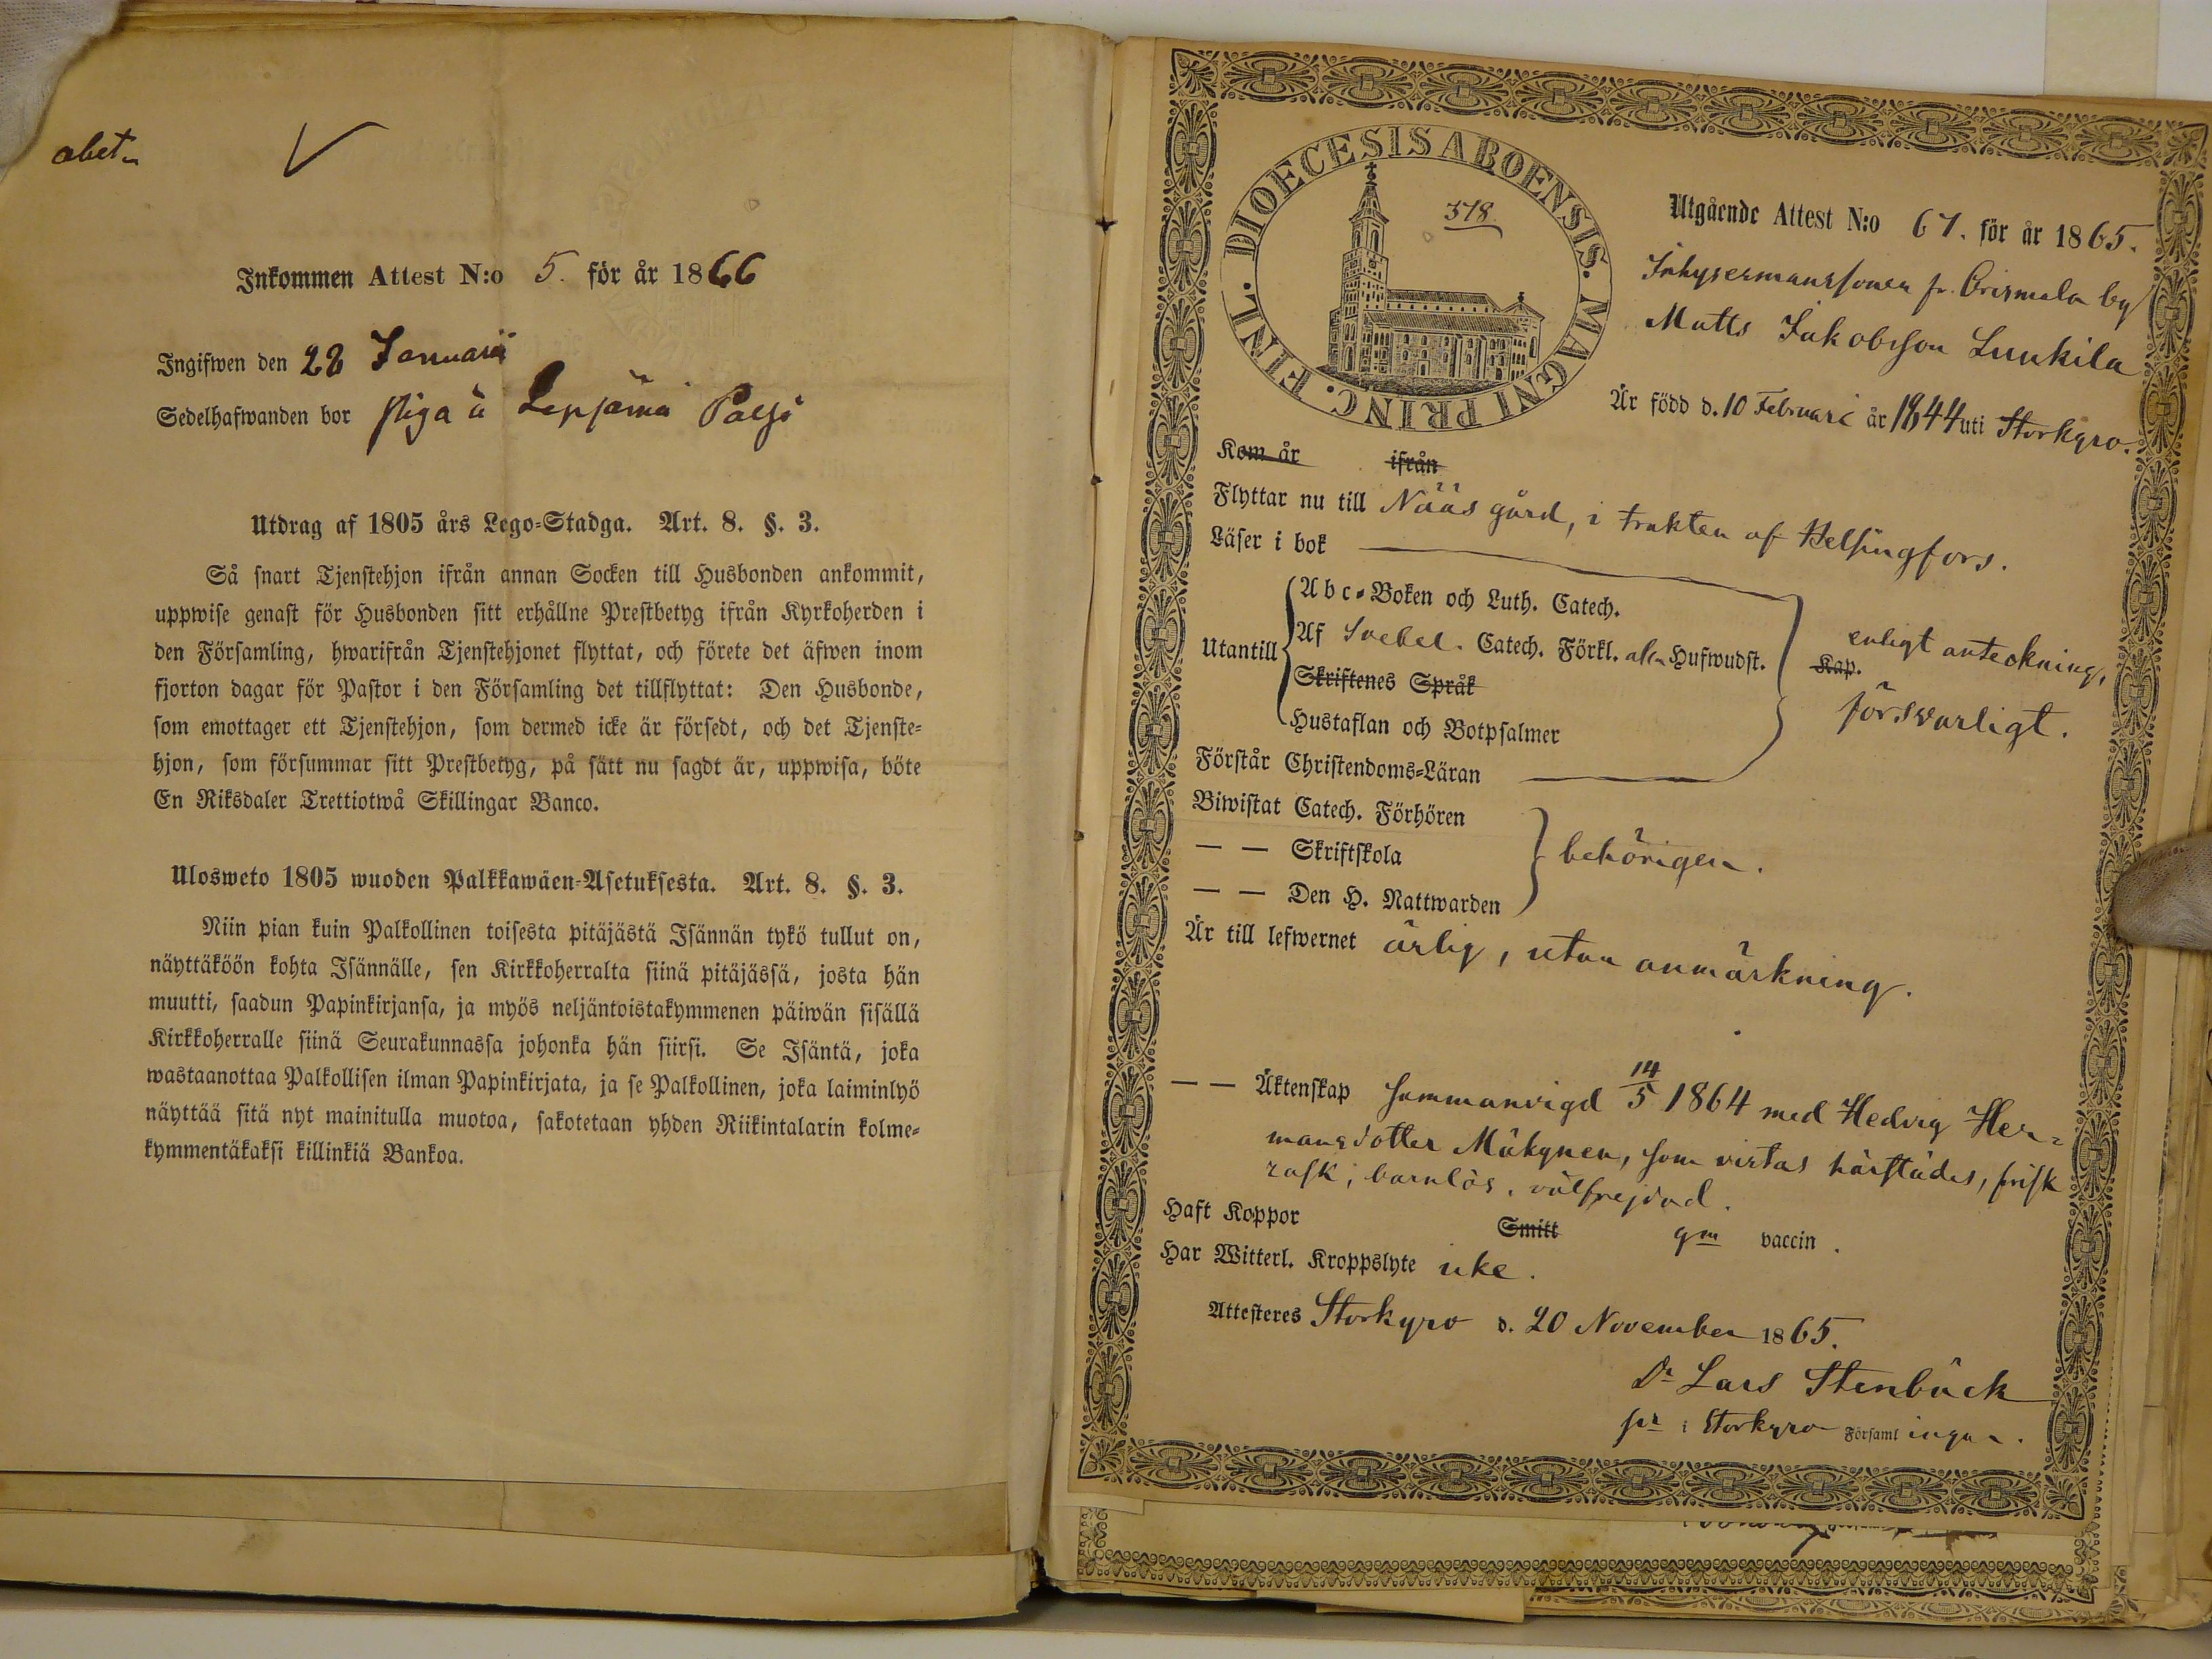 abet
Inkommen Attest N:o 5. för år 1866
Ingifwen den 28 Januarii
Sedelhafwanden bor piga å
Utdrag af 1805 års Lego-Stadga. Art. 8. §. 3.
Så snart Tjenstehjon ifrån annan Socken till Husbonden ankommit,
uppwise genast för Husbonden sitt erhållne Prestbetyg ifrån Kyrkoherden i
den Församling, hwarifrån Tjenstehjonet flyttat, och förete det äfwen inom
fjorton dagar för Pastor i den Församling det tillflyttat: Den Husbonde,
som emottager ett Tjenstehjon, som dermed icke är försedt, och det Tjenste-
hjon, som försummar sitt Prestbetyg, på sätt nu sagdt är, uppwisa, böte
En Riksdaler Trettiotwå Skillingar Banco.
Ulosweto 1805 wuoden Palkkawäen-Asetuksesta. Art. 8. §. 3.
Niin pian kuin Palkollinen toisesta pitäjästä Isännän tykö tullut on,
näyttäköön kohta Isännälle, sen Kirkkoherralta siinä pitäjässä, josta hän
muutti, saadun Papinkirjansa, ja myös neljäntoistakymmenen päiwän sisällä
Kirkkoherralle siinä Seurakunnassa johonka hän siirsi. Se Isäntä, joka
wastaanottaa Palkollisen ilman Papinkirjata, ja se Palkollinen, joka laiminlyö
näyttää sitä nyt mainitulla muotoa, sakotetaan yhden Riikintalarin kolme-
kymmentäkaksi killinkiä Bankoa.
DIOECESIS ABOENSIS. MAGNI PRINC. FINL.
378.
Utgående Attest N:o 67. för år 1865.
Inhysermanssonen fr. Orismala by
Matts Jakobsson Luukila
Är född d. 10 Februari år 1844 uti Storkyro.
Kom år ifrån
Flyttar nu till Nääs gård, i trakten af Helsingfors.
Läser i bok
Abc-Boken och Luth. Catech.
Utantill Af Svebel. Catech. Förkl. alla Hufwudst.
Skriftenes Språk
Hustaflan och Botpsalmer
Kap. enligt anteckning,
försvarligt.
Förstår Christendoms-Läran
Biwistat Catech. Förhören
— — Skriftskola behörigen.
— — Den H. Nattwarden
Är till lefwernet ärlig, utan anmärkning.
— — Äktenskap sammanvigd 14/5 1864 med Hedvig Her-
mansdotter Mäkynen, som vistas härstädes, frisk
rask, barnlös, välfrejdad.
Haft Koppor Smitt gm vaccin.
Har Witterl. Kroppslyte icke.
Attesteres Storkyro d. 20 November 1865.
Dr Lars Stenbäck
pr i Storkyro Församlingen.